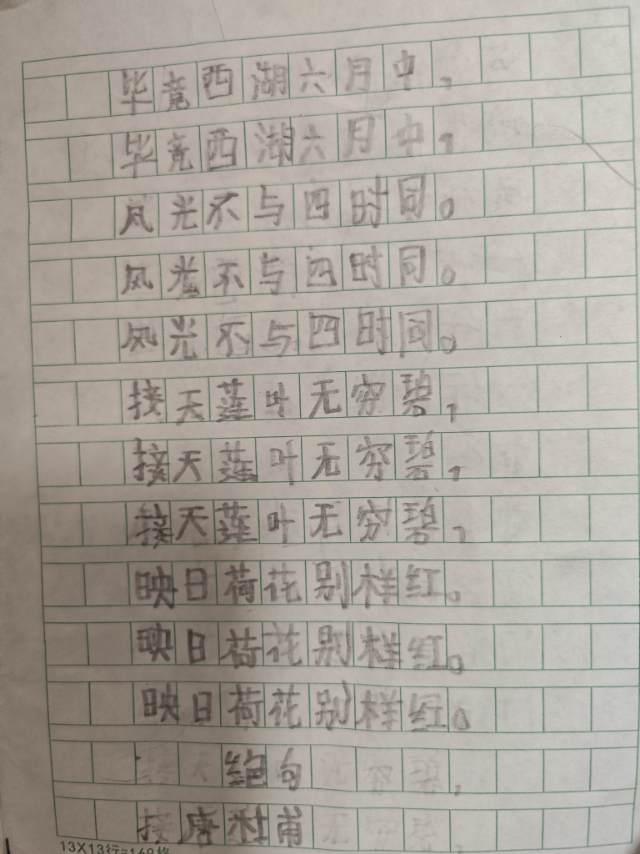 毕竟西湖六月中，
毕竟西湖六月中，
风光不与四时同。
风光不与四时同。
风光不与四时同。
接天莲叶无穷碧，
接天莲叶无穷碧，
接天莲叶无穷碧，
映日荷花别样红。
映日荷花别样红。
映日荷花别样红。
绝句
唐杜甫
13X13行=169格